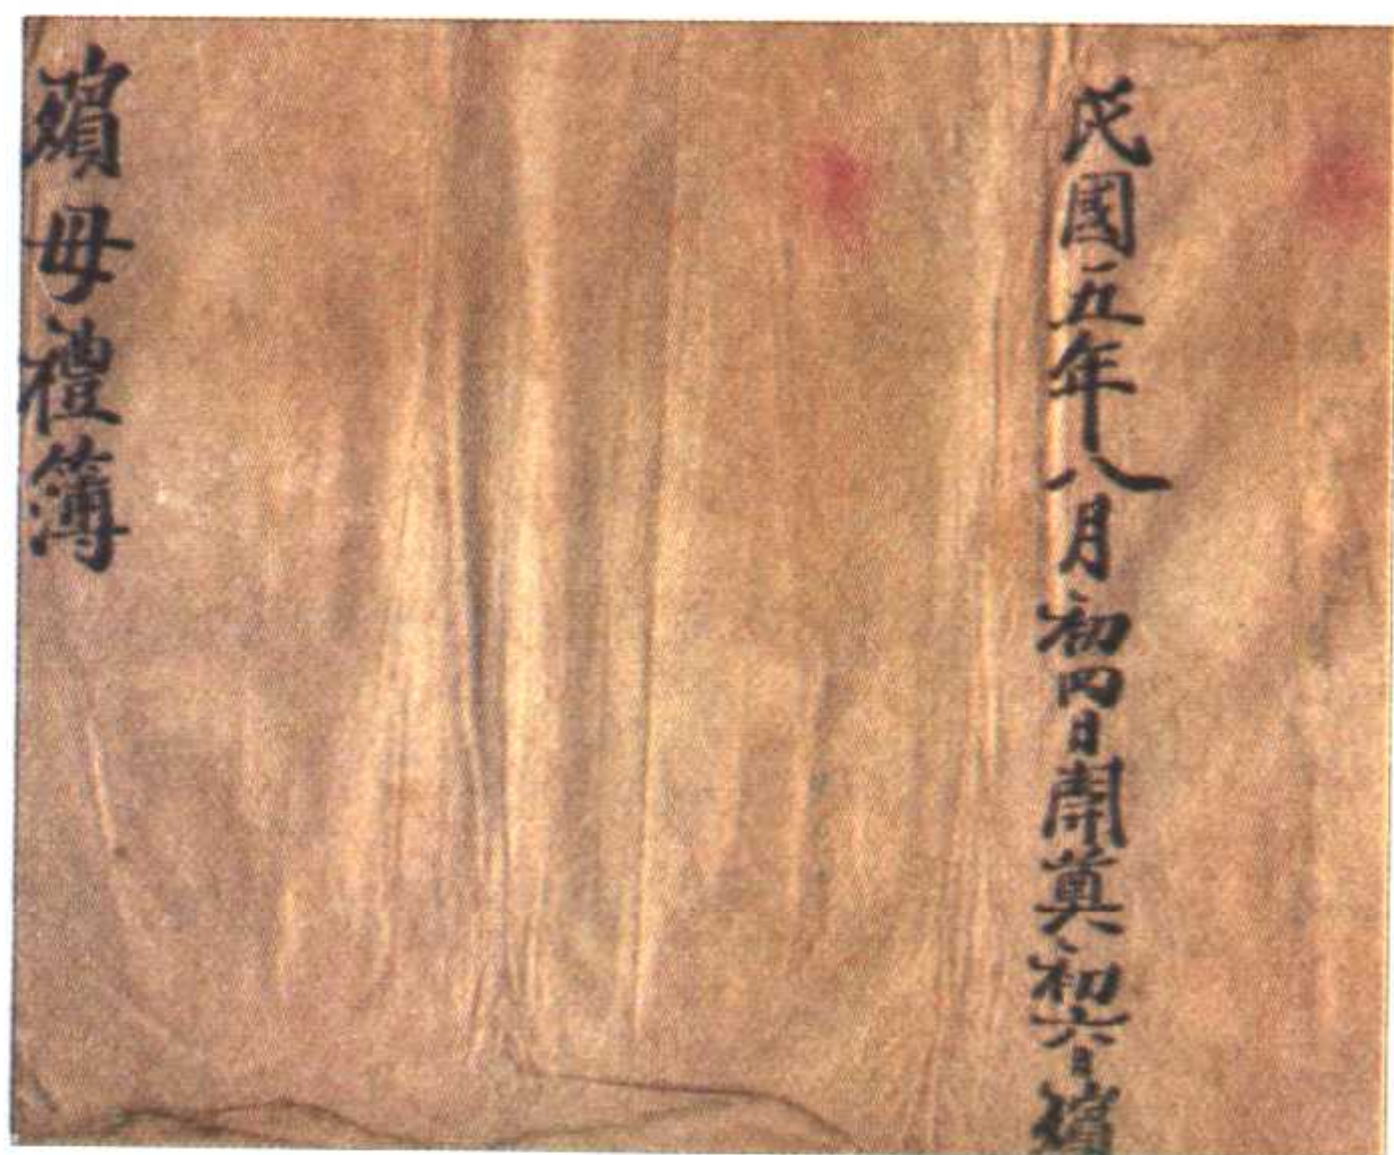 民國五年八月初四日開奠初六日殯
殯母禮簿